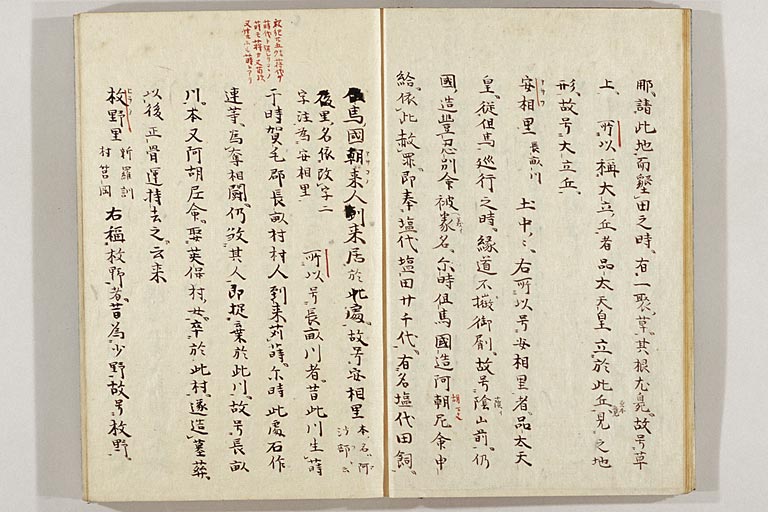 耶請此地而墾田之時有一聚草其根尤臰故号草
上所以稱大立丘者品太天皇立於此丘見之地
形故号大立丘
安相里 長畝川 土中々右所以号安相里者品太天
皇従但馬巡行之時縁道不撤御冠故号陰山前仍
國造豊忍別命被名尓時但馬國造阿朝尼命申
給依此赦罪即奉塩代塩田廿千代有名塩代田飼
但馬國朝来人到来居於此處故号安相里 本名阿沙部云
後里名依改字二字注為安相里 所以号長畝川者昔此川生蒋
于時賀毛郡長畝村村人到来苅蒋尓時此處石作
連等為奪相闘仍煞其人即投棄於此川故号長畝
川本又阿胡尼命娶英保村女卒於此村遂造墓葬
以後正骨運持去之云来
枚野里 新羅訓村筥岡 右稱枚野者昔為少野故号枚野